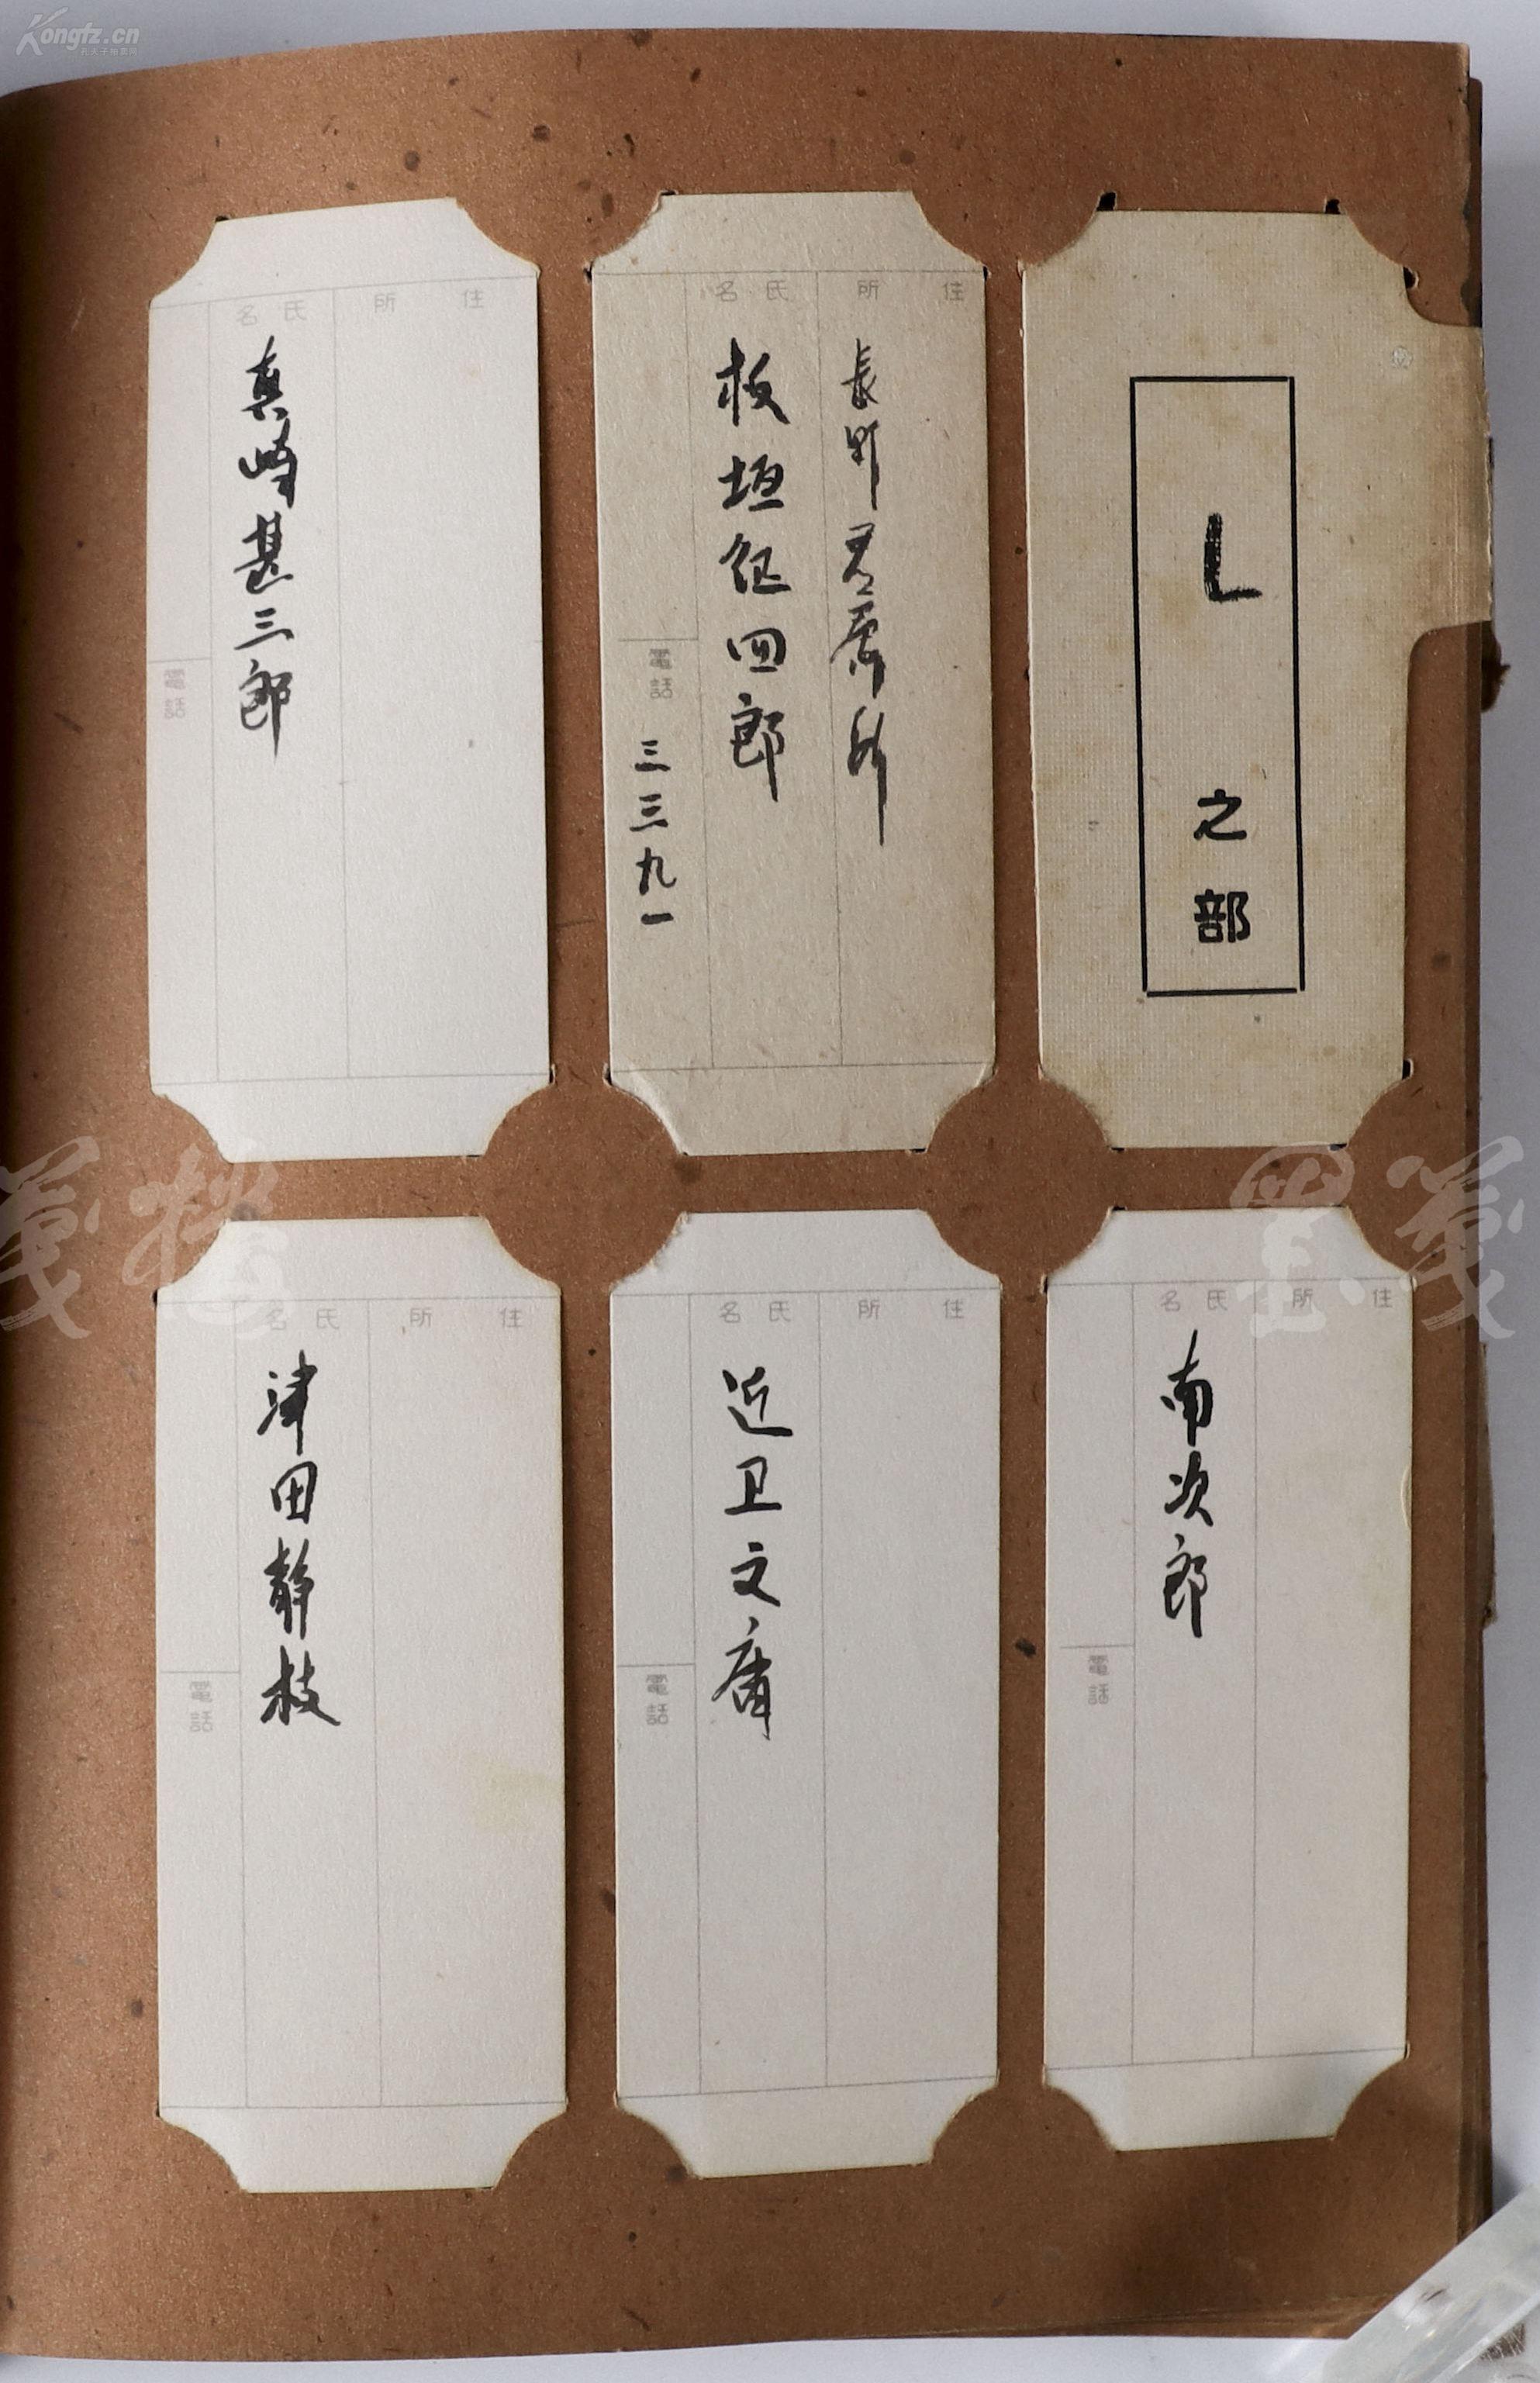 Kongfz.cn
L之部
住所
氏名
電話
板垣征四郎
三三九一
住所
氏名
真崎甚三郎
電話
住所
氏名
南次郎
電話
住所
氏名
近卫文麿
電話
住所
氏名
津田静枝
電話